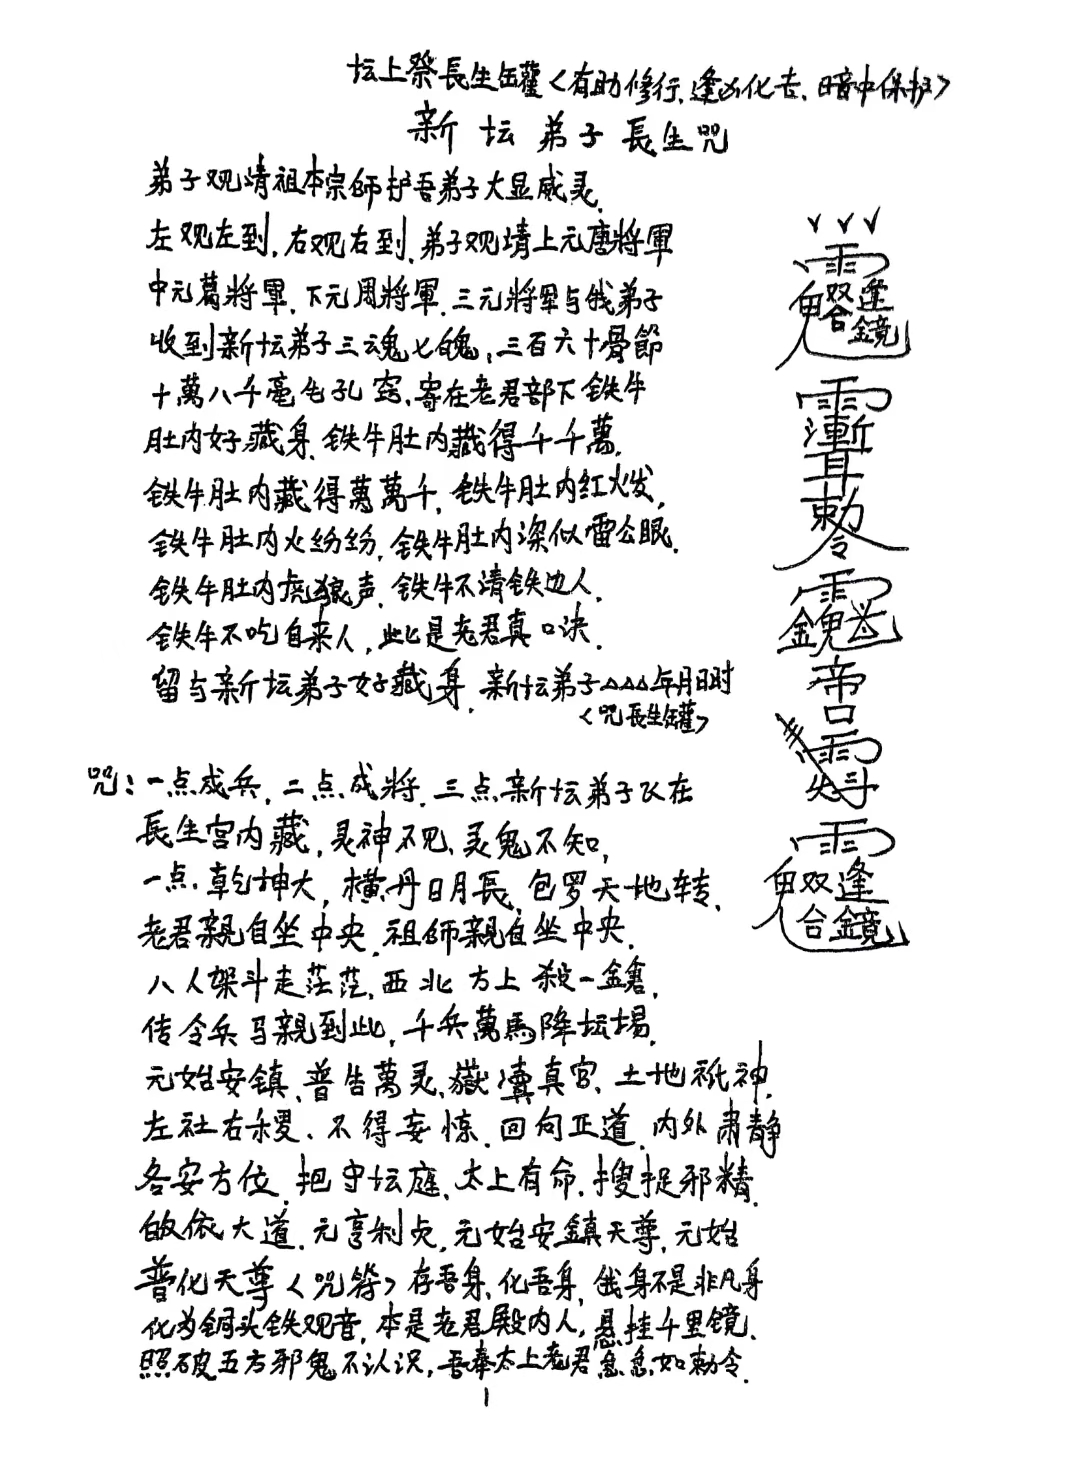 坛上祭長生罐〈有助修行、逢凶化吉、暗中保护〉
新坛弟子長生咒
弟子观靖祖本宗師护吾弟子大显威灵.
左观左到,右观右到,弟子观靖上元唐將軍
中元葛將軍、下元周將軍,三元將軍与我弟子
收到新坛弟子三魂七魄,三百六十骨節
十萬八千毫毛孔窍,寄在老君部下铁牛
肚内好藏身、铁牛肚内藏得千千萬.
铁牛肚内藏得萬萬千,铁牛肚内红火发,
铁牛肚内火纷纷,铁牛肚内深似雷公眼.
铁牛肚内虎狼声、铁牛不清铁边人.
铁牛不吃自来人,此是老君真口决.
留与新坛弟子好藏身,新坛弟子△△△年月日时
〈咒長生罐〉
咒:一点成兵,二点成將,三点新坛弟子飞在
長生宫内藏,灵神不见、灵鬼不知,
一点乾坤大,横丹日月長、包罗天地转、
老君親自坐中央,祖師親自坐中央.
八人架斗走茫茫,西北方上殺一鎗,
传令兵马親到此,千兵萬馬降坛場.
元始安镇、普告萬灵、嶽瀆真官、土地祇神.
左社右稷、不得妄惊,回向正道,内外肃静
各安方位,把守坛庭、太上有命,搜捉邪精.
皈依大道、元亨利贞,元始安鎮天尊,元始
普化天尊〈咒符〉存吾身、化吾身,我身不是非凡身
化为銅头铁观音,本是老君殿内人,悬挂千里镜、
照破五方邪鬼不认识,吾奉太上老君急急如勅令.
1
雨
鬼双逢
合鏡
雨
漸
耳
勅令
雨
金鬼
帝
口
雨
斗
雨
鬼双逢
合鏡